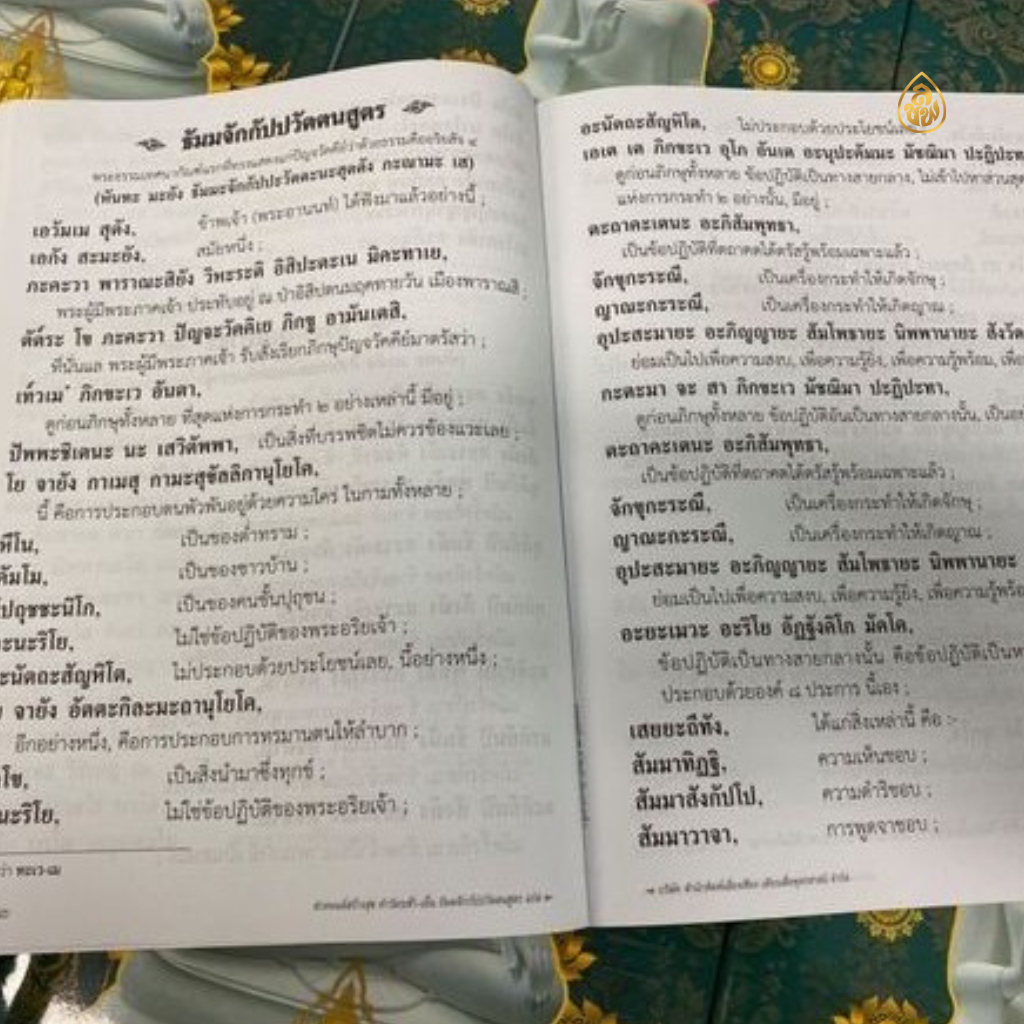 ธัมมจักกัปปวัตตนสูตร
พระธรรมเทศนากัณฑ์แรกที่ทรงแสดงแก่ปัญจวัคคีย์ว่าด้วยธรรมคืออริยสัจ ๔
(หันทะ มะยัง ธัมมะจักกัปปะวัตตะนะสุตตัง ภะณามะ เส)
เอวัมเม สุตัง, ข้าพเจ้า (พระอานนท์) ได้ฟังมาแล้วอย่างนี้ ;
เอกัง สะมะยัง, สมัยหนึ่ง ;
ภะคะวา พาราณะสิยัง วิหะระติ อิสิปะตะเน มิคะทาเย,
พระผู้มีพระภาคเจ้า ประทับอยู่ ณ ป่าอิสิปตนมฤคทายวัน เมืองพาราณสี ;
ตัต๎ระ โข ภะคะวา ปัญจะวัคคิเย ภิกขู อามันเตสิ,
ที่นั่นแล พระผู้มีพระภาคเจ้า รับสั่งเรียกภิกษุปัญจวัคคีย์มาตรัสว่า ;
เท๎วเม ภิกขะเว อันตา,
ดูก่อนภิกษุทั้งหลาย ที่สุดแห่งการกระทำ ๒ อย่างเหล่านี้ มีอยู่ ;
ปัพพะชิเตนะ นะ เสวิตัพพา, เป็นสิ่งที่บรรพชิตไม่ควรข้องแวะเลย ;
โย จายัง กาเมสุ กามะสุขัลลิกานุโยโค,
นี้ คือการประกอบตนพัวพันอยู่ด้วยความใคร่ ในกามทั้งหลาย ;
หีโน, เป็นของต่ำทราม ;
คัมโม, เป็นของชาวบ้าน ;
โปถุชชะนิโก, เป็นของคนชั้นปุถุชน ;
ะนะริโย, ไม่ใช่ข้อปฏิบัติของพระอริยเจ้า ;
ะนัตถะสัญหิโต, ไม่ประกอบด้วยประโยชน์เลย, นี้อย่างหนึ่ง ;
จายัง อัตตะกิละมะถานุโยโค,
อีกอย่างหนึ่ง, คือการประกอบการทรมานตนให้ลำบาก ;
โข, เป็นสิ่งนำมาซึ่งทุกข์ ;
นะริโย, ไม่ใช่ข้อปฏิบัติของพระอริยเจ้า ;
อะนัตถะสัญหิโต, ไม่ประกอบด้วยประโยชน์
เอเต เต ภิกขะเว อุโภ อันเต อะนุปะคัมมะ มัชฌิมา ปะฏิปะท
ดูก่อนภิกษุทั้งหลาย ข้อปฏิบัติเป็นทางสายกลาง, ไม่เข้าไปหาส่วนสุด
แห่งการกระทำ ๒ อย่างนั้น, มีอยู่ ;
ตะถาคะเตนะ อะภิสัมพุทธา,
เป็นข้อปฏิบัติที่ตถาคตได้ตรัสรู้พร้อมเฉพาะแล้ว ;
จักขุกะระณี, เป็นเครื่องกระทำให้เกิดจักษุ ;
ญาณะกะระณี, เป็นเครื่องกระทำให้เกิดญาณ ;
อุปะสะมายะ อะภิญญายะ สัมโพธายะ นิพพานายะ สังวัต
ย่อมเป็นไปเพื่อความสงบ, เพื่อความรู้ยิ่ง, เพื่อความรู้พร้อม, เพื่อ
กะตะมา จะ สา ภิกขะเว มัชฌิมา ปะฏิปะทา,
ดูก่อนภิกษุทั้งหลาย ข้อปฏิบัติอันเป็นทางสายกลางนั้น, เป็นอย่
ตะถาคะเตนะ อะภิสัมพุทธา,
เป็นข้อปฏิบัติที่ตถาคตได้ตรัสรู้พร้อมเฉพาะแล้ว ;
จักขุกะระณี, เป็นเครื่องกระทำให้เกิดจักษุ ;
ญาณะกะระณี, เป็นเครื่องกระทำให้เกิดญาณ ;
อุปะสะมายะ อะภิญญายะ สัมโพธายะ นิพพานายะ
ย่อมเป็นไปเพื่อความสงบ, เพื่อความรู้ยิ่ง, เพื่อความรู้พร้อ
อะยะเมวะ อะริโย อัฏฐังคิโก มัคโค,
ข้อปฏิบัติเป็นทางสายกลางนั้น คือข้อปฏิบัติเป็นห
ประกอบด้วยองค์ ๘ ประการ นี้เอง ;
เสยยะถีทัง, ได้แก่สิ่งเหล่านี้ คือ :-
สัมมาทิฏฐิ, ความเห็นชอบ ;
สัมมาสังกัปโป, ความดำริชอบ ;
สัมมาวาจา, การพูดจาชอบ ;